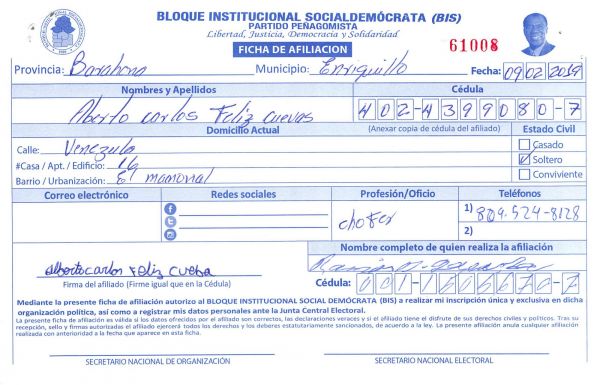 BLOQUE INSTITUCIONAL SOCIALDEMÓCRATA (BIS)
PARTIDO PEÑAGOMISTA
Libertad, Justicia, Democracia y Solidaridad
FICHA DE AFILIACION
61008
Provincia: Barahona Municipio: Enriquillo Fecha: 09 02 2019
Nombres y Apellidos Cédula
Alberto Carlos Feliz Cuevas 402-4399080-7
Domicilio Actual (Anexar copia de cédula del afiliado) Estado Civil
Calle: Venezula Casado
#Casa / Apt. / Edificio: 16 Soltero
Barrio / Urbanización: El manorial Conviviente
Correo electrónico Redes sociales Profesión/Oficio Teléfonos
chofer 1) 809-524-8128
2)
Nombre completo de quien realiza la afiliación
alberto carlos Feliz cueba Ramón
Firma del afiliado (Firme igual que en la Cédula) Cédula: 001-1605670-7
Mediante la presente ficha de afiliación autorizo al BLOQUE INSTITUCIONAL SOCIAL DEMÓCRATA (BIS) a realizar mi inscripción única y exclusiva en dicha
organización política, así como a registrar mis datos personales ante la Junta Central Electoral.
La presente ficha de afiliación es válida si los datos ofrecidos por el afiliado son correctos, las declaraciones veraces y si el afiliado tiene el disfrute de sus derechos civiles y políticos. Tras su
recepción, sello y firmas autorizadas el afiliado ejercerá todos los derechos y los deberes estatutariamente sancionados, de acuerdo a la ley. La presente afiliación anula cualquier afiliación
realizada con anterioridad a la fecha que aparece en esta ficha.
SECRETARIO NACIONAL DE ORGANIZACIÓN SECRETARIO NACIONAL ELECTORAL